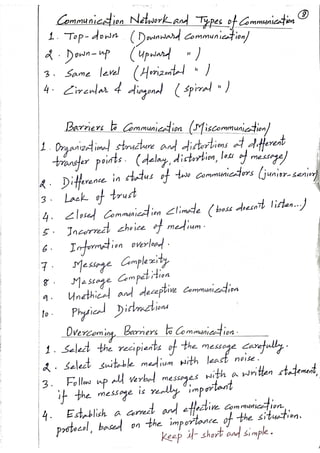 9
Communication Network and Types of Communication
1. Top-down (Downward communication)
2. Down-up (Upward " )
3. Same level (Horizontal " )
4. Circular & diagonal (spiral " )
Barriers to Communication (Miscommunication)
1. Organizational structure and distortions at different
transfer points. (delay, distortion, loss of message)
2. Difference in status of two communicators (junior-senior)
3. Lack of trust
4. Closed Communication Climate (boss doesn't listen...)
5. Incorrect choice of medium.
6. Information overload.
7. Message Complexity
8. Message Competition
9. Unethical and deceptive communication
10. Physical Distractions
Overcoming Barriers to Communication.
1. Select the recipients of the message carefully.
2. Select suitable medium with least noise.
3. Follow up all verbal messages with a written statement,
if the message is really important
4. Establish a correct and effective communication
protocol, based on the importance of the situation.
keep it short and simple.